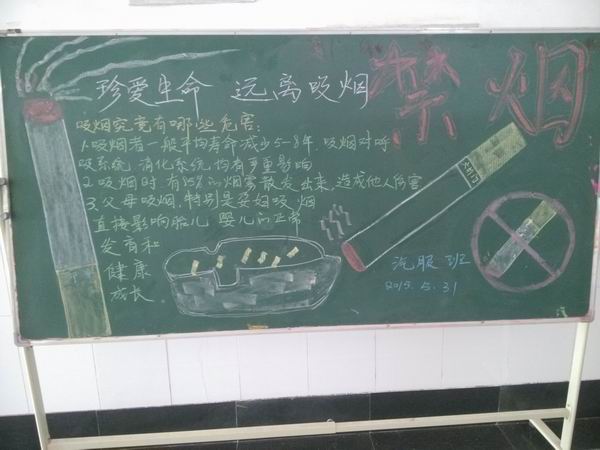 珍爱生命 远离吸烟
禁烟
吸烟究竟有哪些危害:
1.吸烟者一般平均寿命减少5-8年.吸烟对呼
吸系统 消化系统均有严重影响
2.吸烟时.有85%的烟雾散发出来,造成他人伤害
3.父母吸烟.特别是孕妇吸烟
直接影响胎儿 婴儿的正常
发育和
健康
成长。
汽服班
2015.5.31